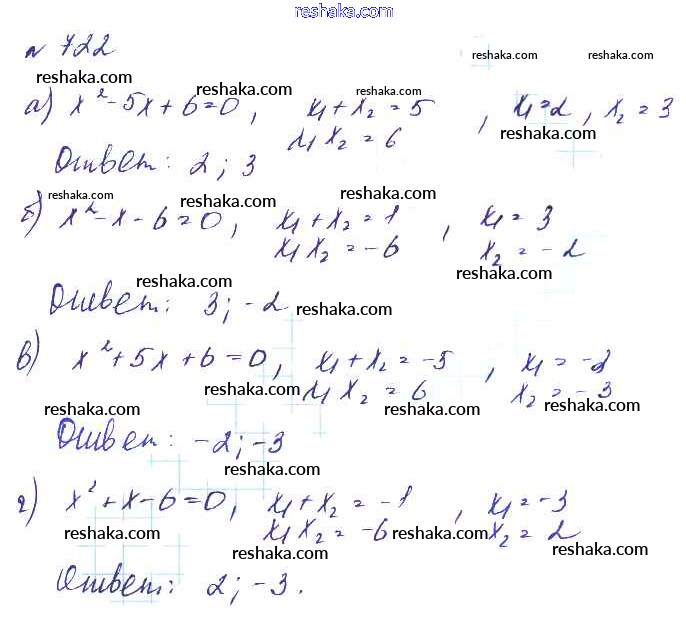 reshaka.com
№ 722
reshaka.com reshaka.com reshaka.com reshaka.com reshaka.com
а) x² - 5x + 6 = 0, x₁ + x₂ = 5, x₁ = 2, x₂ = 3
x₁ x₂ = 6 reshaka.com
Ответ: 2; 3 reshaka.com
reshaka.com reshaka.com reshaka.com
б) x² - x - 6 = 0, x₁ + x₂ = 1, x₁ = 3
x₁ x₂ = -6 x₂ = -2
reshaka.com reshaka.com
Ответ: 3; -2 reshaka.com
в) x² + 5x + 6 = 0, x₁ + x₂ = -5, x₁ = -2
reshaka.com x₁ x₂ = 6 x₂ = -3
reshaka.com reshaka.com reshaka.com
Ответ: -2; -3
reshaka.com
г) x² + x - 6 = 0, x₁ + x₂ = -1, x₁ = -3
reshaka.com x₁ x₂ = -6 reshaka.com x₂ = 2
reshaka.com reshaka.com
Ответ: 2; -3.